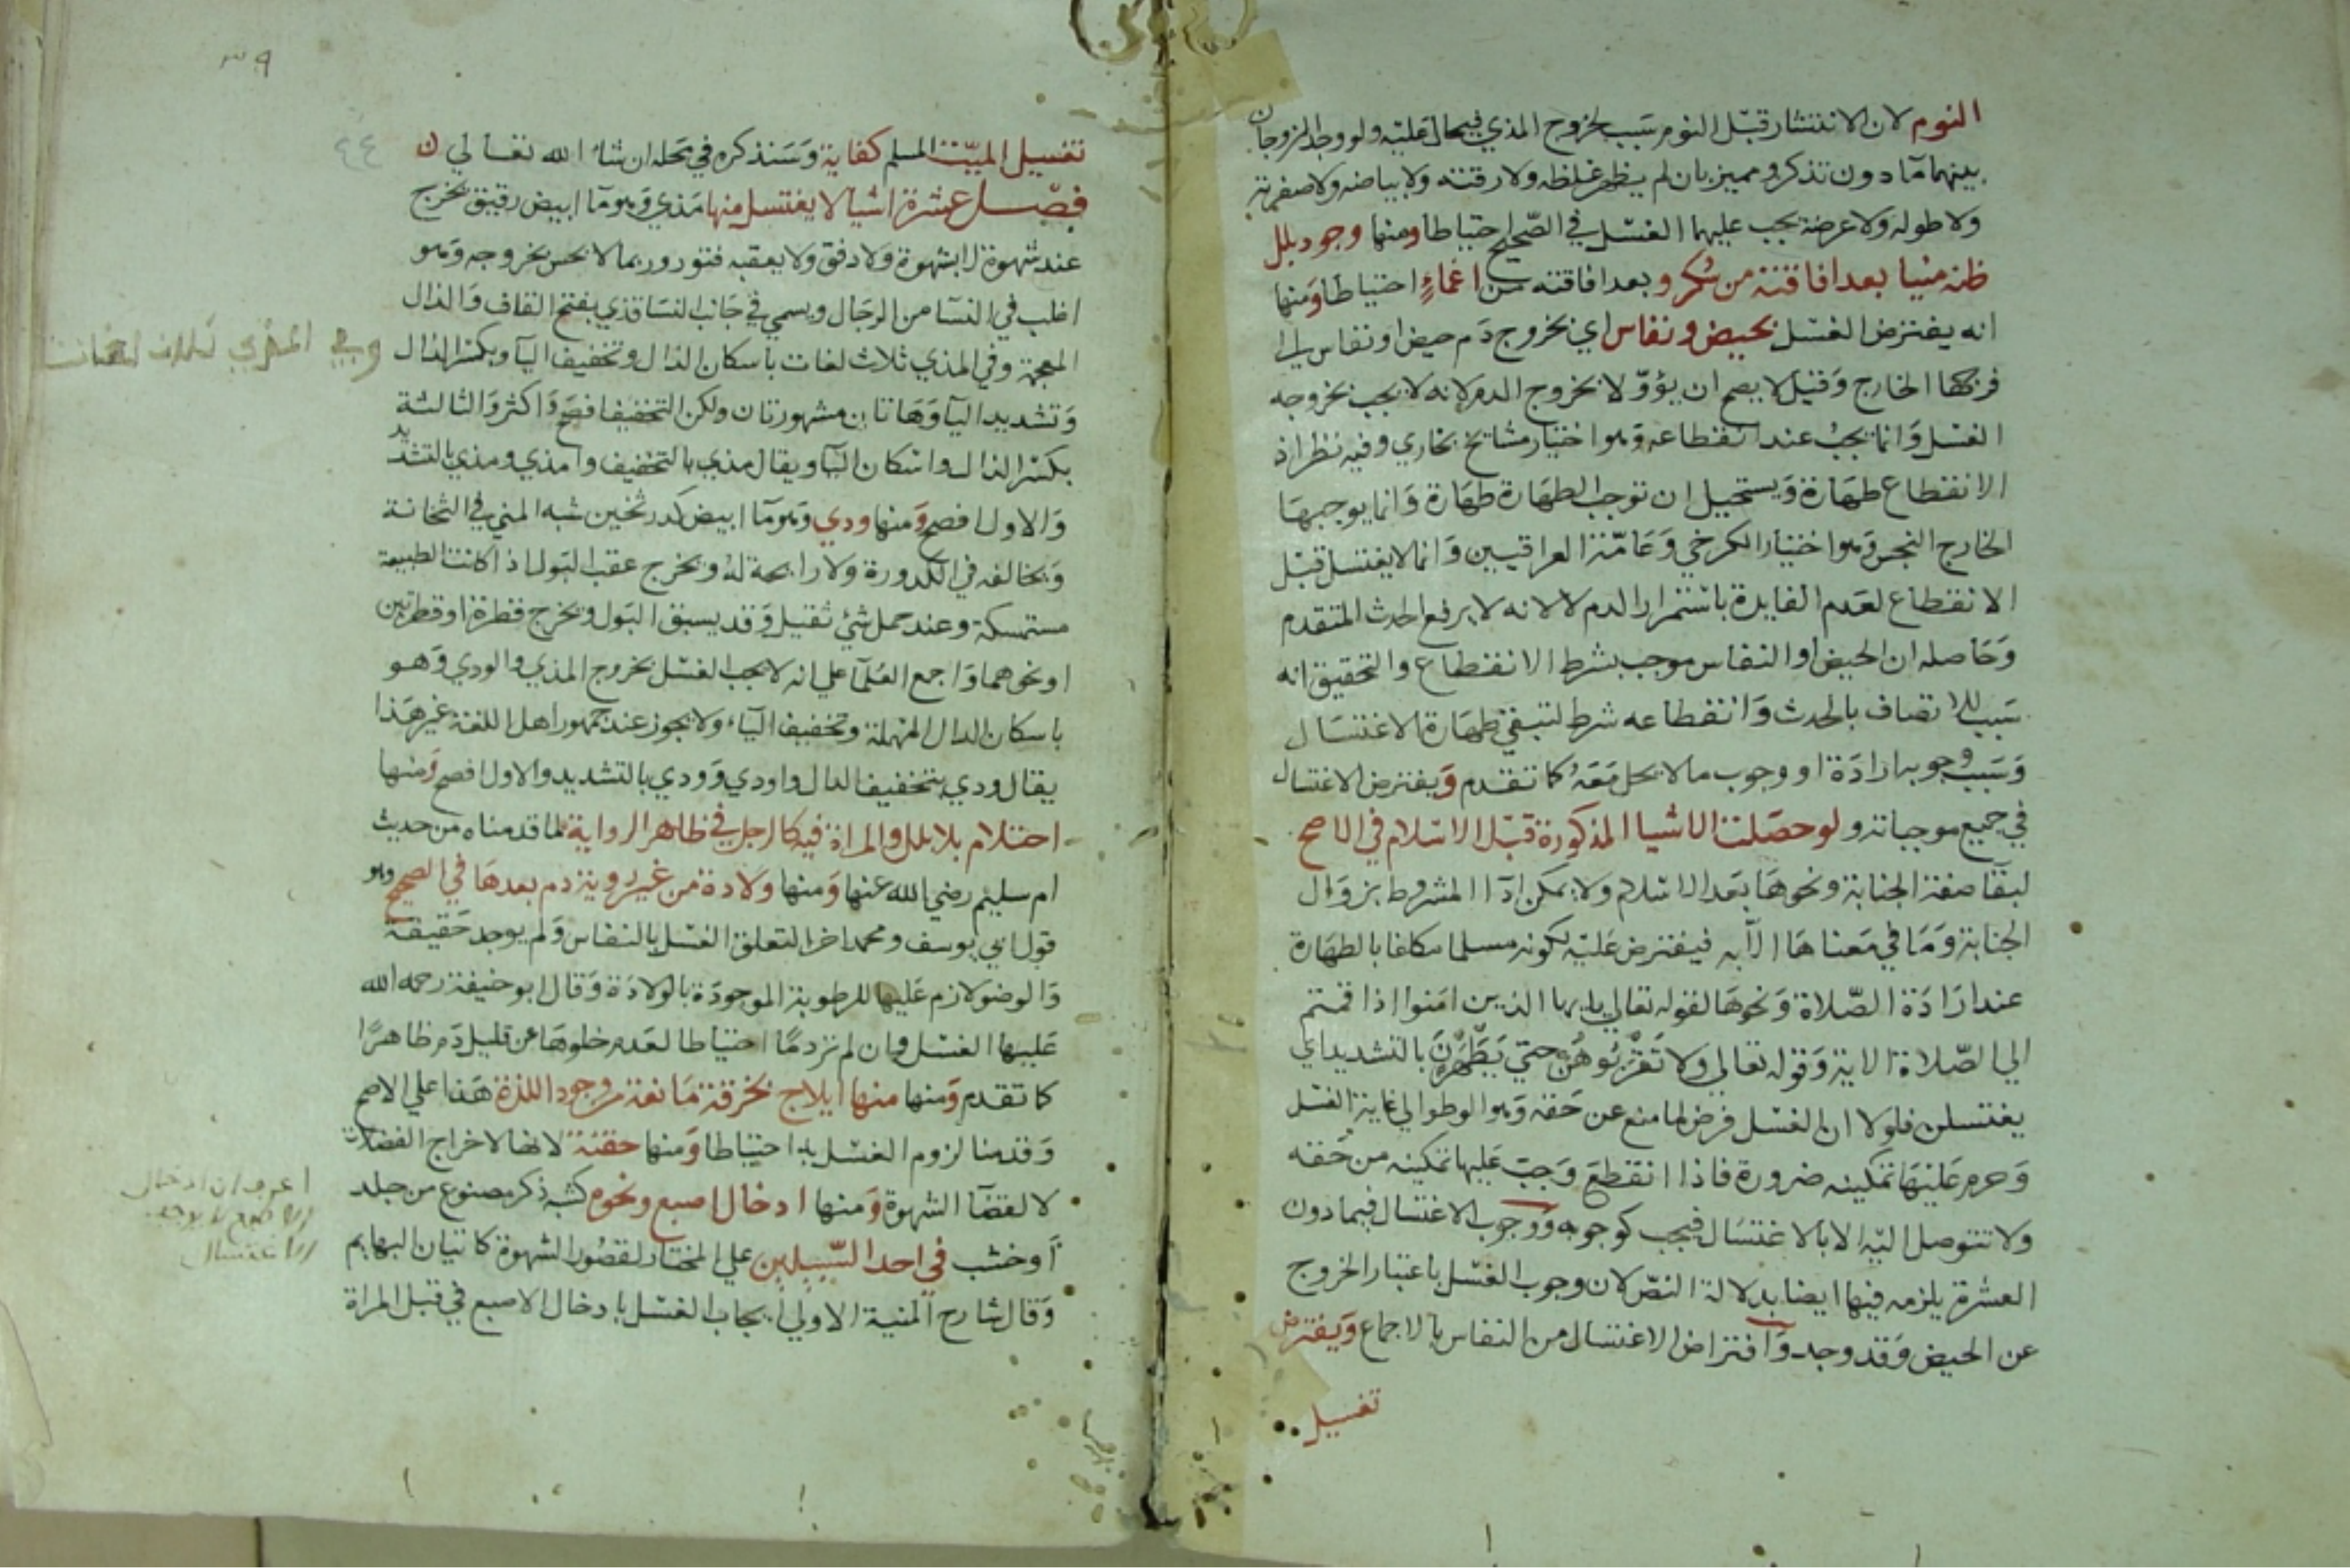 النوم لان الانتشار قبل النوم سبب لخروج المذي فيحال عليه ولو وجد الزوجان
بينهما مآ دون تذكر ومميز بان لم يظهر غلظه ولا رقته ولا بياضه ولا صفرته
ولا طوله ولا عرضه يجب عليهما الغسل في الصحيح احتياطا ومنها وجود بلل
ظنه منيا بعد افاقته من سكر و بعد افاقته من اغماءٍ احتياطا ومنها
انه يفترض الغسل بحيض ونفاس اي بخروج دم حيض او نفاس الي
فرجها الخارج وقيل لا يصح ان يؤول لا بخروج الدم لانه لا يجب بخروجه
الغسل وانما يجب عند انقطاعه وهو اختيار مشايخ بخاري وفيه نظر اذ
الانقطاع طهارة ويستحيل ان توجب الطهارة طهارة وانما يوجبها
الخارج النجس وهو اختيار الكرخي وعامة العراقيين وانما لا يغتسل قبل
الانقطاع لعدم الفايدة باستمرار الدم لا لانه لا يرفع الحدث المتقدم
وحاصله ان الحيض او النفاس موجب بشرط الانقطاع والتحقيق انه
سبب للاتصاف بالحدث وانقطاعه شرط لتبقي طهارة الاغتسال
وسبب وجوبه ارادة او وجوب ما لا يحل معه كما تقدم ويفترض الاغتسال
في جميع موجباته و لو حصلت الاشيا المذكورة قبل الاسلام في الاصح
لبقآ صفة الجنابة ونحوها بعد الاسلام ولا يمكن ادآ المشروط بزوال
الجنابة وما في معناها الا به فيفترض عليه لكونه مسلما مكلفا بالطهارة
عند ارادة الصلاة ونحوها لقوله تعالي يا ايها الذين امنوا اذا قمتم
الي الصلاة الاية وقوله تعالي ولا تقربوهن حتي يطهرن بالتشديد اي
يغتسلن فلولا ان الغسل فرض لما منع عن حقه وهو الوطو الي غاية الغسل
وحرم عليها تمكينه ضرورة فاذا انقطع وجب عليها تمكينه من حقه
ولا تتوصل اليه الا بالاغتسال فيجب كوجوبه ووجوب الاغتسال فيما دون
العشرة يلزمه فيها ايضا بدلالة النص لان وجوب الغسل باعتبار الخروج
عن الحيض وقد وجد وافتراض الاغتسال من النفاس بالاجماع ويفترض
تغسيل
٣٩
٤٤
تغسيل الميت المسلم كفاية وسنذكره في محله ان شاء الله تعالي
فصل عشرة اشيا لا يغتسل منها مذي وهو مآ ابيض رقيق يخرج
عند شهوة لا بشهوة ولا دفق ولا يعقبه فتور وربما لا يحس بخروجه وهو
اغلب في النسآ من الرجال ويسمي في جانب النسا قذي بفتح القاف والذال
المعجمة وفي المذي ثلاث لغات باسكان الذال وتخفيف اليآ وبكسر الذال
وتشديد اليآ وهاتان مشهورتان ولكن التخفيف افصح واكثر والثالثة
بكسر الذال واسكان اليآ ويقال مذي بالتخفيف وامذي ومذي بالتشديد
والاول افصح ومنها ودي وهو مآ ابيض كدر ثخين شبه المني في الثخانة
ويخالفه في الكدورة ولا رايحة له ويخرج عقب البول اذا كانت الطبيعة
مستمسكة وعند حمل شئ ثقيل وقد يسبق البول ويخرج قطرة او قطرتين
او نحوهما واجمع العلمآ علي انه لا يجب الغسل بخروج المذي والودي وهو
باسكان الدال المهملة وتخفيف الياء ولا يجوز عند جمهور اهل اللغة غير هذا
يقال ودي بتخفيف الدال واودي وودي بالتشديد والاول افصح ومنها
احتلام بلا بلل والمراة فيه كالرجل في ظاهر الرواية لما قدمناه من حديث
ام سليم رضي الله عنها ومنها ولادة من غير روية دم بعدها في الصحيح وهو
قول ابي يوسف ومحمد اخرا لتعلق الغسل بالنفاس ولم يوجد حقيقة
والوضو لازم عليها للرطوبة الموجودة بالولادة وقال ابو حنيفة رحمه الله
عليها الغسل وان لم تر دمًا احتياطا لعدم خلوها عن قليل دم ظاهرًا
كما تقدم ومنها منها ايلاج بخرقة مانعة من وجود اللذة هذا علي الاصح
وقدمنا لزوم الغسل به احتياطا ومنها حقنة لانها لاخراج الفضلات
لا لقضآ الشهوة ومنها ادخال اصبع ونحوه كشبه ذكر مصنوع من جلد
او خشب في احد السبيلين علي المختار لقصور الشهوة كاتيان البهايم
وقال شارح المنية الاولي ايجاب الغسل بادخال الاصبع في قبل المراة
وفي المذي ثلاث لغات
اعرف ان ادخال
الاصبع لا يوجب
الاغتسال